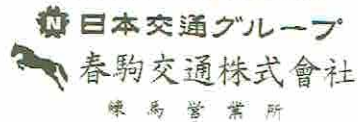 N 日本交通グループ
春駒交通株式會社
練馬営業所